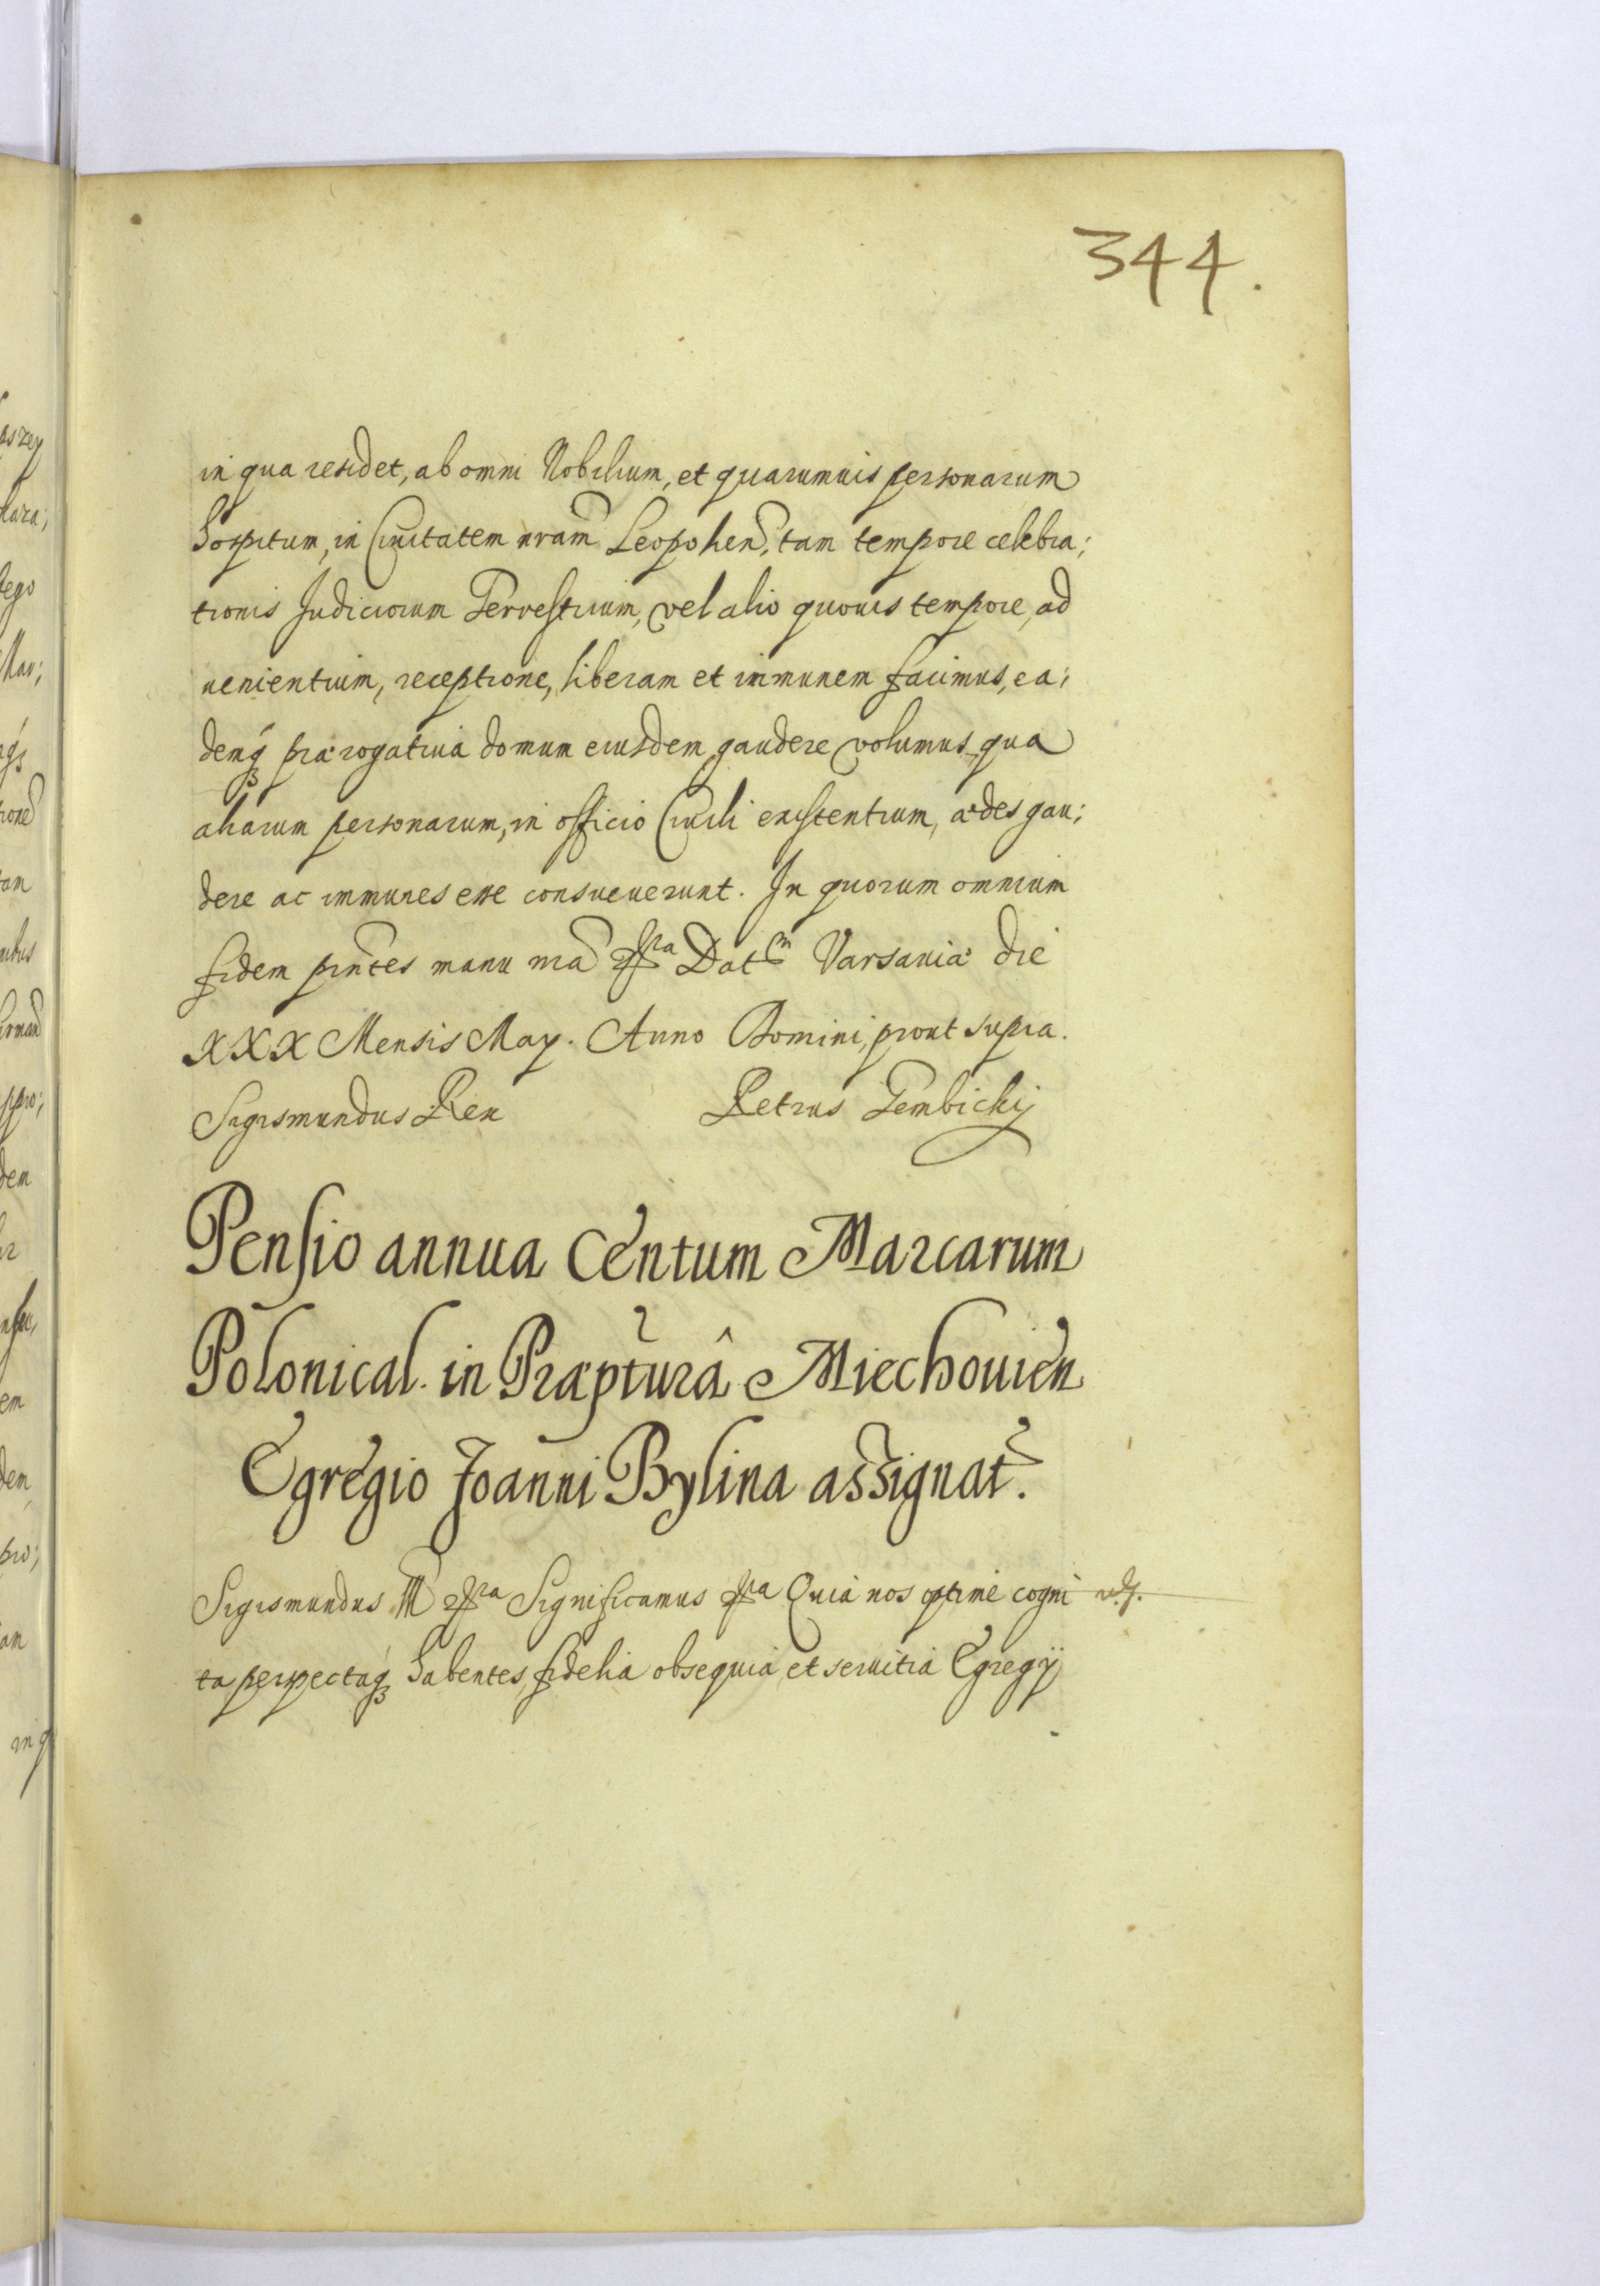 344.
in qua residet, ab omni Nobilium, et quarumuis personarum
hospitum, in Ciuitatem nram Leopolien, tam tempore celebra;
tionis Judiciorum Terrestrium, vel alio quouis tempore, ad
uenientium, receptione, liberam et immunem facimus, ea;
demq₃ prærogatiua domum eiusdem gaudere volumus qua
aliarum personarum, in officio Ciuili existentium, ædes gau;
dere ac immunes esse consueuerunt. In quorum omnium
fidem pñtes manu nra Datm Varsauiæ die
XXX Mensis May. Anno Domini, prout supra.
Sigismundus Rex Petrus Gembickij
Pensio annua Centum Marcarum
Polonical. in Præpturâ Miechouien
Egregio Joanni Bylina assignat.
Sigismundus III Significamus Quia nos optime cogni
ta perspectaq₃ habentes, fidelia obsequia et seruitia Egregÿ